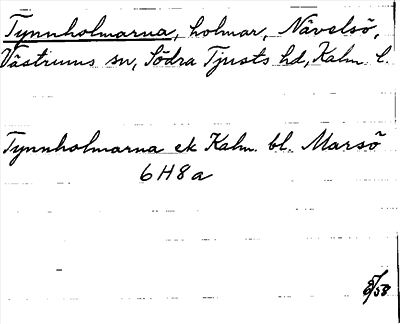 Tynnholmarna, holmar, Nävelsö,
Västrums sn, Södra Tjusts hd, Kalm. l.
Tynnholmarna ek Kalm. bl. Marsö
6H8a